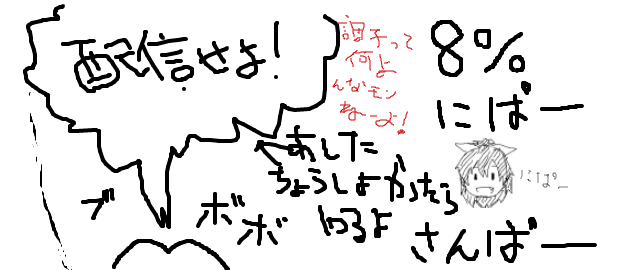 配信せよ!
調子って
何よ
んなモン
ねーよ!
8%
にぱー
あした
ちょうしよかったら
やるよ
にぱー
ブ
ボ
ボ
さんぱー